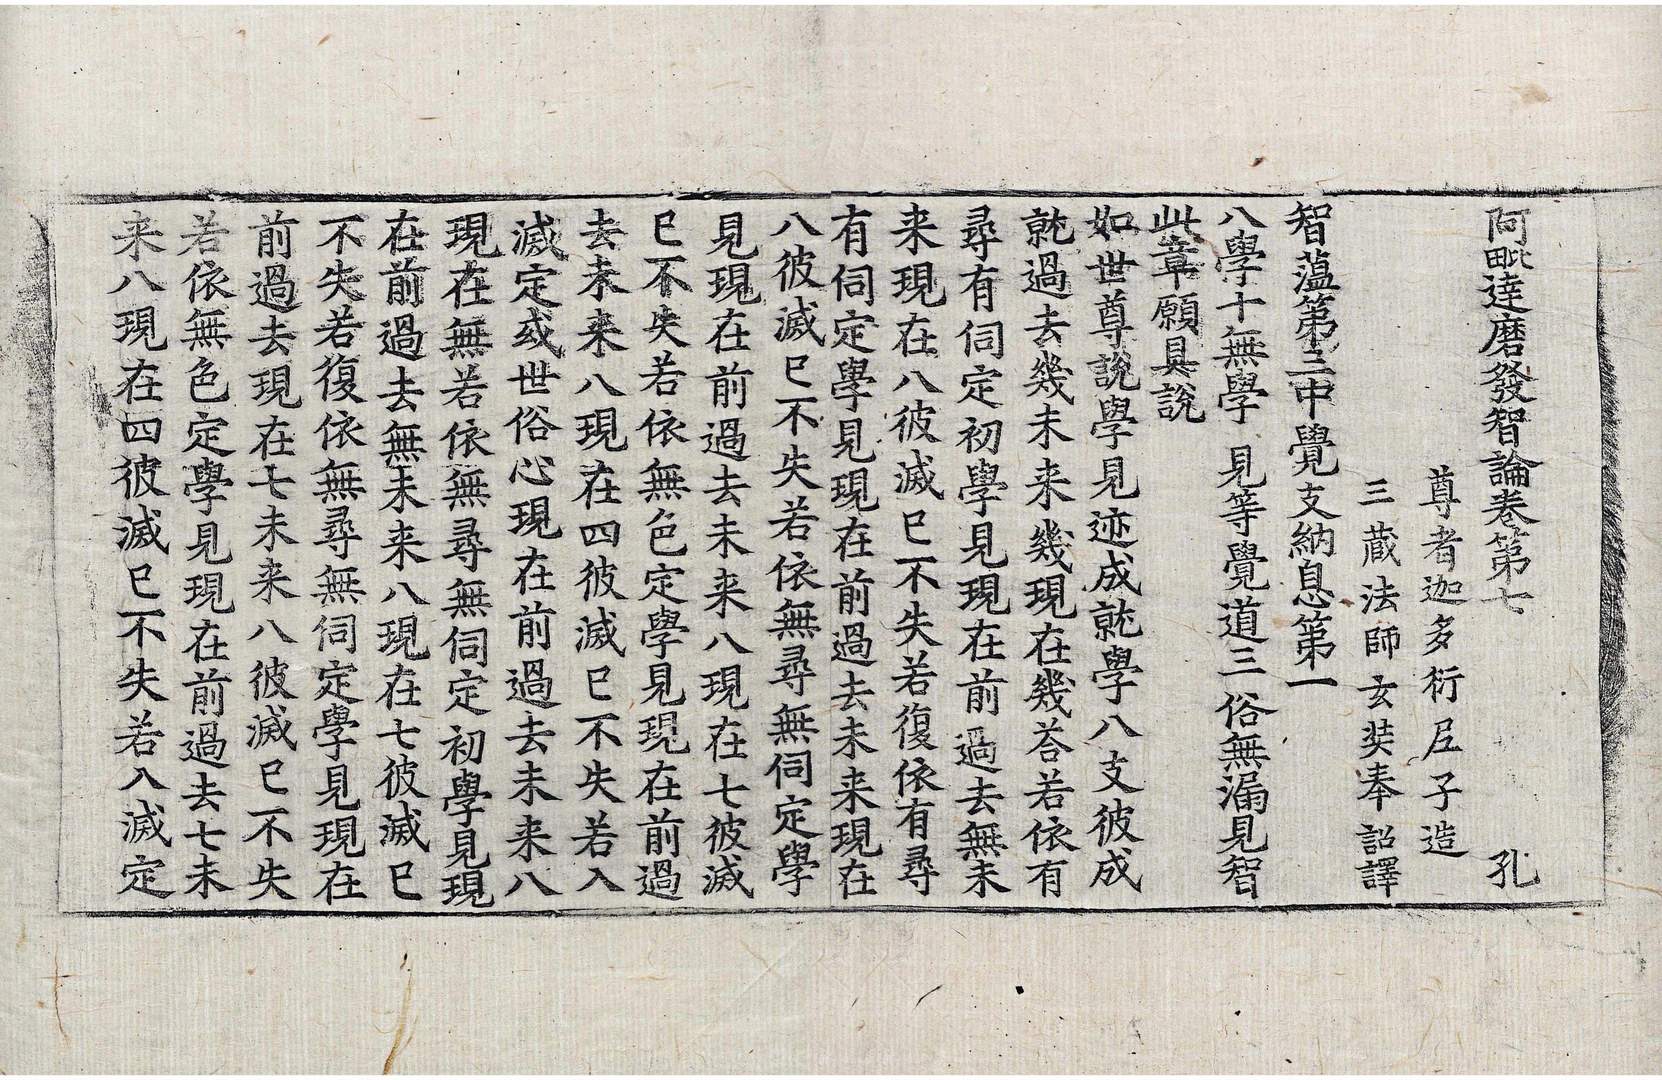 阿毗達磨發智論卷第七　孔
尊者迦多衍尼子造
三藏法師玄奘奉 詔譯
智蘊第三中覺支納息第一
八學十無學 見等覺道三 俗無漏見智
此章願具說
如世尊說學見迹成就學八支彼成
就過去幾未来幾現在幾荅若依有
尋有伺定初學見現在前過去無未
来現在八彼滅已不失若復依有尋
有伺定學見現在前過去未来現在
八彼滅已不失若依無尋無伺定學
見現在前過去未来八現在七彼滅
已不失若依無色定學見現在前過
去未来八現在四彼滅已不失若入
滅定或世俗心現在前過去未来八
現在無若依無尋無伺定初學見現
在前過去無未来八現在七彼滅已
不失若復依無尋無伺定學見現在
前過去現在七未来八彼滅已不失
若依無色定學見現在前過去七未
来八現在四彼滅已不失若入滅定